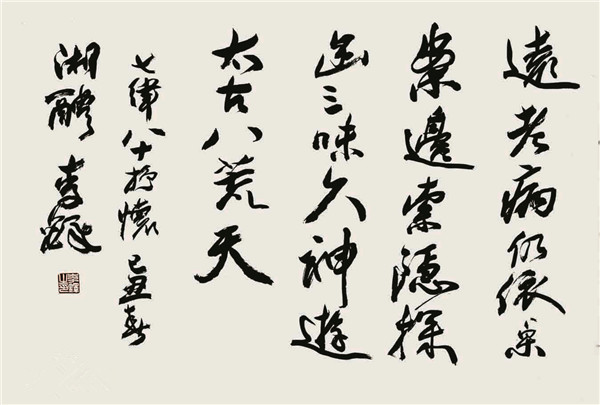 遠老病仍依桌
案邊索隱探
幽三味久神遊
太古八荒天
七律八十抒懷 己丑春
湘醴 李鐸